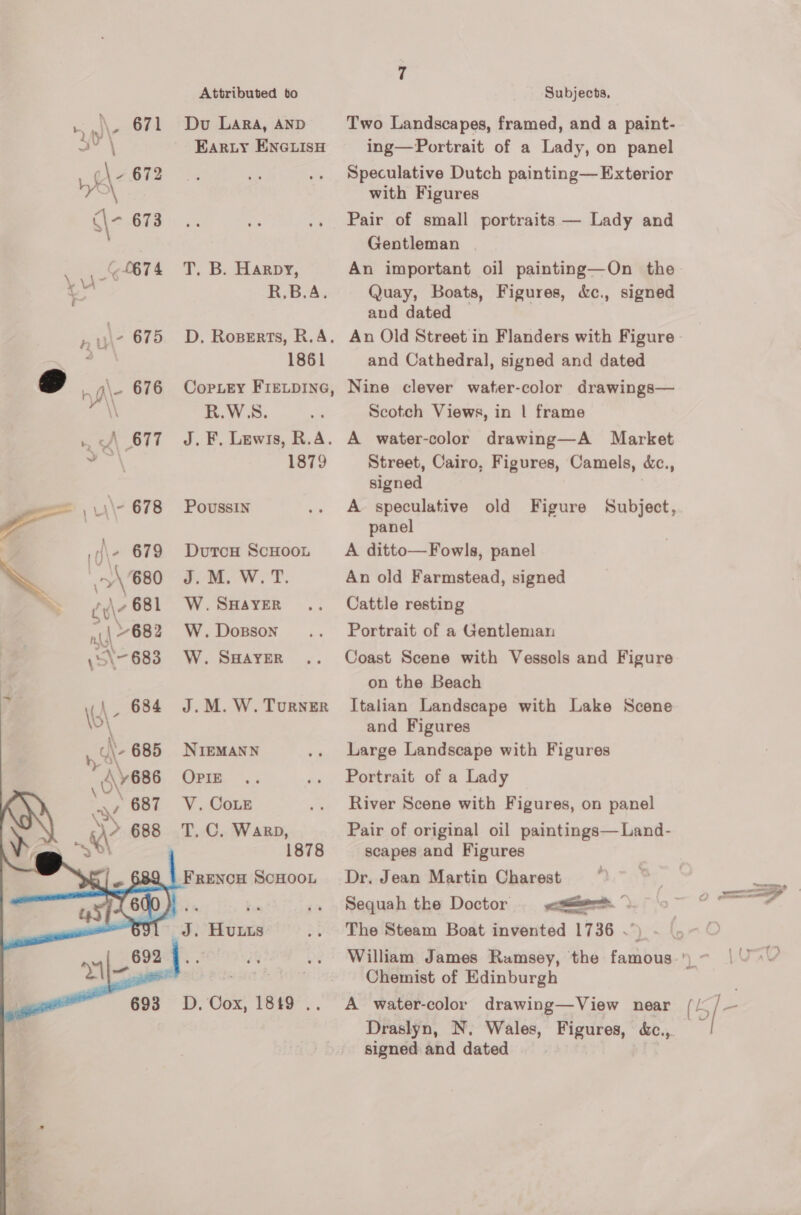 7
Attributed to Subjects.
671 Du Lara, and Two Landscapes, framed, and a paint-
Early English ing—Portrait of a Lady, on panel
672 .. .. .. Speculative Dutch painting—Exterior
with Figures
673 .. .. .. Pair of small portraits — Lady and
Gentleman
674 T. B. Hardy, An important oil painting—On the
R.B.A. Quay, Boats, Figures, &c., signed
and dated
675 D. Roberts, R.A. An Old Street in Flanders with Figure
1861 and Cathedral, signed and dated
676 Copley Fielding, Nine clever water-color drawings—
R.W.S. .. Scotch Views, in 1 frame
677 J. F. Lewis, R.A. A water-color drawing—A Market
1879 Street, Cairo, Figures, Camels, &c.,
signed
678 Poussin .. A speculative old Figure Subject,
panel
679 Dutch School A ditto—Fowls, panel
680 J. M. W. T. An old Farmstead, signed
681 W. Shayer .. Cattle resting
682 W. Dobson .. Portrait of a Gentleman
683 W. Shayer .. Coast Scene with Vessels and Figure
on the Beach
684 J. M. W. Turner Italian Landscape with Lake Scene
and Figures
685 Niemann .. Large Landscape with Figures
686 Opie .. .. Portrait of a Lady
687 V. Cole .. River Scene with Figures, on panel
688 T. C. Ward, Pair of original oil paintings—Land-
1878 scapes and Figures
689 French School Dr. Jean Martin Charest
690 .. .. .. Sequah the Doctor
691 J. Hulls .. The Steam Boat invented 1736
692 .. .. .. William James Ramsey, the famous
Chemist of Edinburgh
693 D. Cox, 1849 .. A water-color drawing—View near
Draslyn, N. Wales, Figures, &c.,
signed and dated